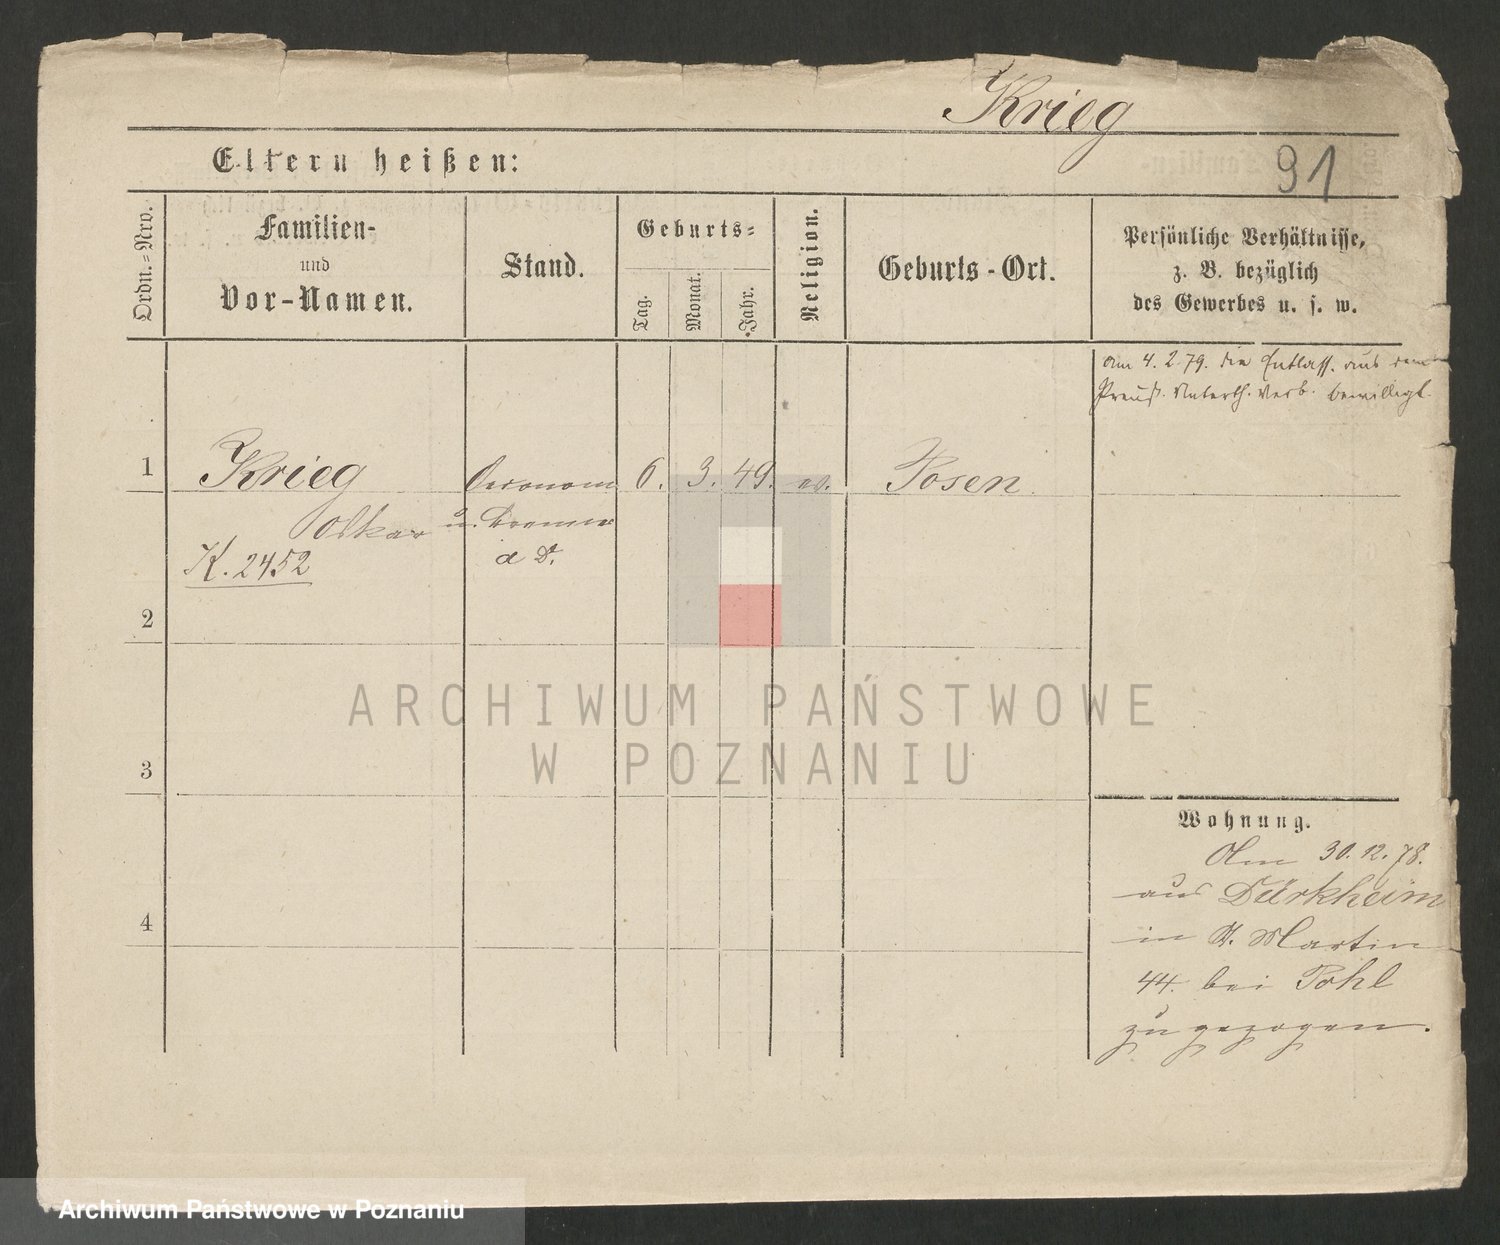 Krieg
Eltern heißen:
91
Ordn.=Nro.
Familien-
und
Vor-Namen.
Stand.
Geburts=
Tag.
Monat.
Jahr.
Religion.
Geburts-Ort.
Persönliche Verhältnisse,
z. B. bezüglich
des Gewerbes u. s. w.
am 4. 2. 79. die Entlass. aus dem
Preuß. Unterth. Verb. bewilligt.
1 Krieg Oeconom 6. 3. 49. ev. Posen
Oskar u.
K. 2452
2
3
4
Wohnung.
Am 30. 12. 78.
aus Dürkheim
in St. Martin
44. bei Pohl
zugezogen.
ARCHIWUM PAŃSTWOWE
W POZNANIU
Archiwum Państwowe w Poznaniu